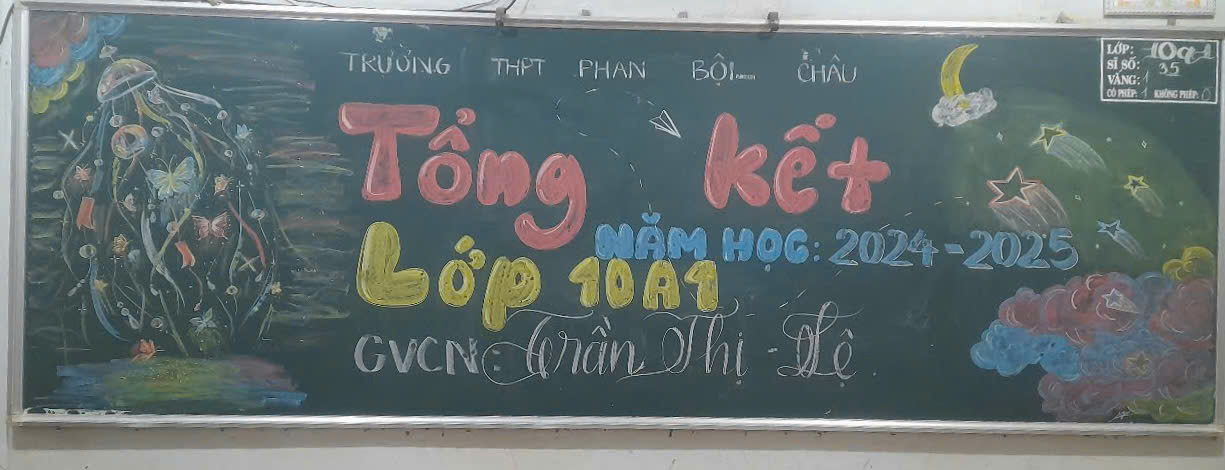 TRƯỜNG THPT PHAN BỘI CHÂU
Tổng kết
NĂM HỌC: 2024-2025
Lớp 10A1
GVCN: Trần Thị - Lệ.
LỚP: 10a1
SĨ SỐ: 35
VẮNG: 1
CÓ PHÉP: 1 KHÔNG PHÉP: 0